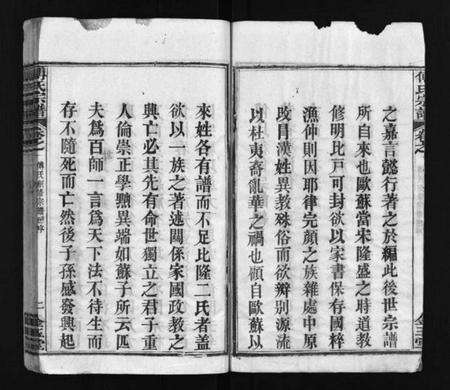 之嘉言懿行著之於編此後世宗譜
所自來也歐蘇當宋隆盛之時道教
修明比戸可封欲以家書保存國粹
漁仲則因耶律完顏之族雜處中原
改目漢姓異教殊俗而欲辨別源流
以杜夷奇亂華之禍也顧自歐蘇以
來姓各有譜而不足比隆二氏者蓋
欲以一族之著述關係家國政教之
興亡必其先有命世獨立之君子重
人倫崇正學黜異端如蘇子所云匹
夫為百師一言為天下法不待生而
存不隨死而亡然後子孫感發興起